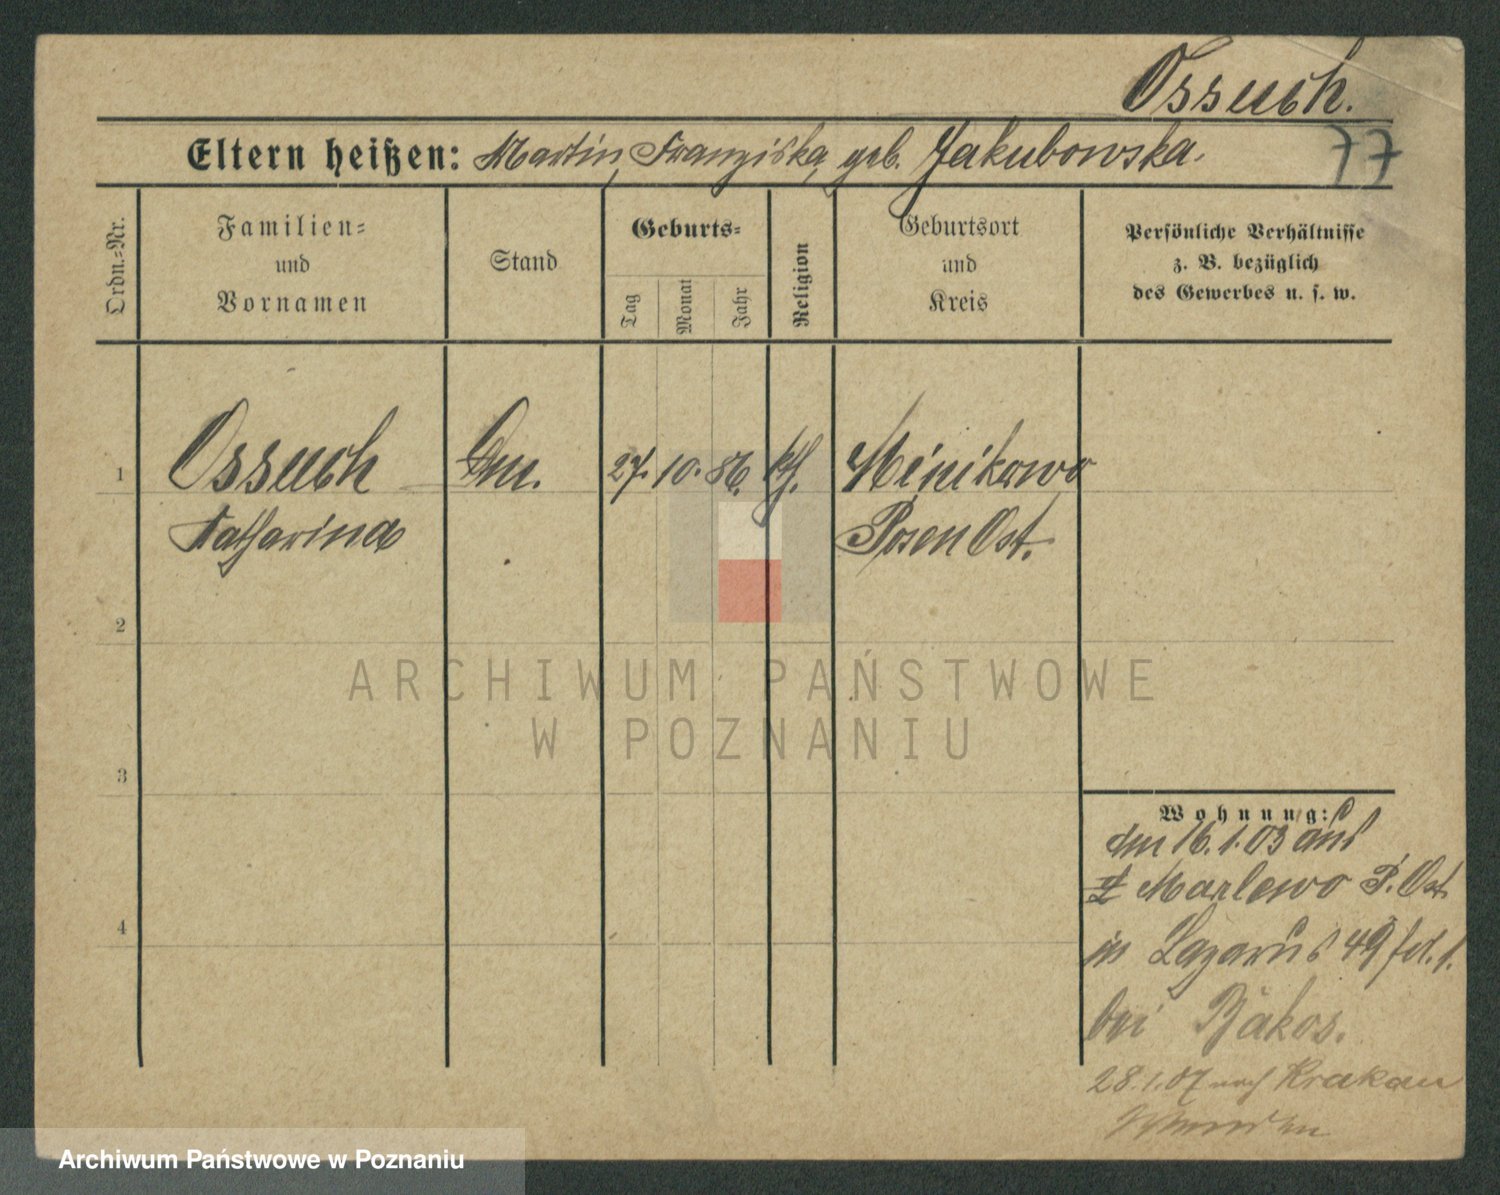 Ossuch.
77
Eltern heißen: Martin, Franziska, geb. Jakubowska.
Ordn.-Nr.
Familien- und Vornamen
Stand
Geburts-
Tag
Monat
Jahr
Religion
Geburtsort und Kreis
Persönliche Verhältnisse
z. B. bezüglich
des Gewerbes u. s. w.
1 Ossuch 27. 10. 86. kth. Minikowo
Katharina Posen Ost.
2
3
4
Wohnung:
den 16.1.03 aus
Marlewo P. Ost
in Lazarus 49
bei
28.1.07 nach Krakau
ARCHIWUM PAŃSTWOWE
W POZNANIU
Archiwum Państwowe w Poznaniu